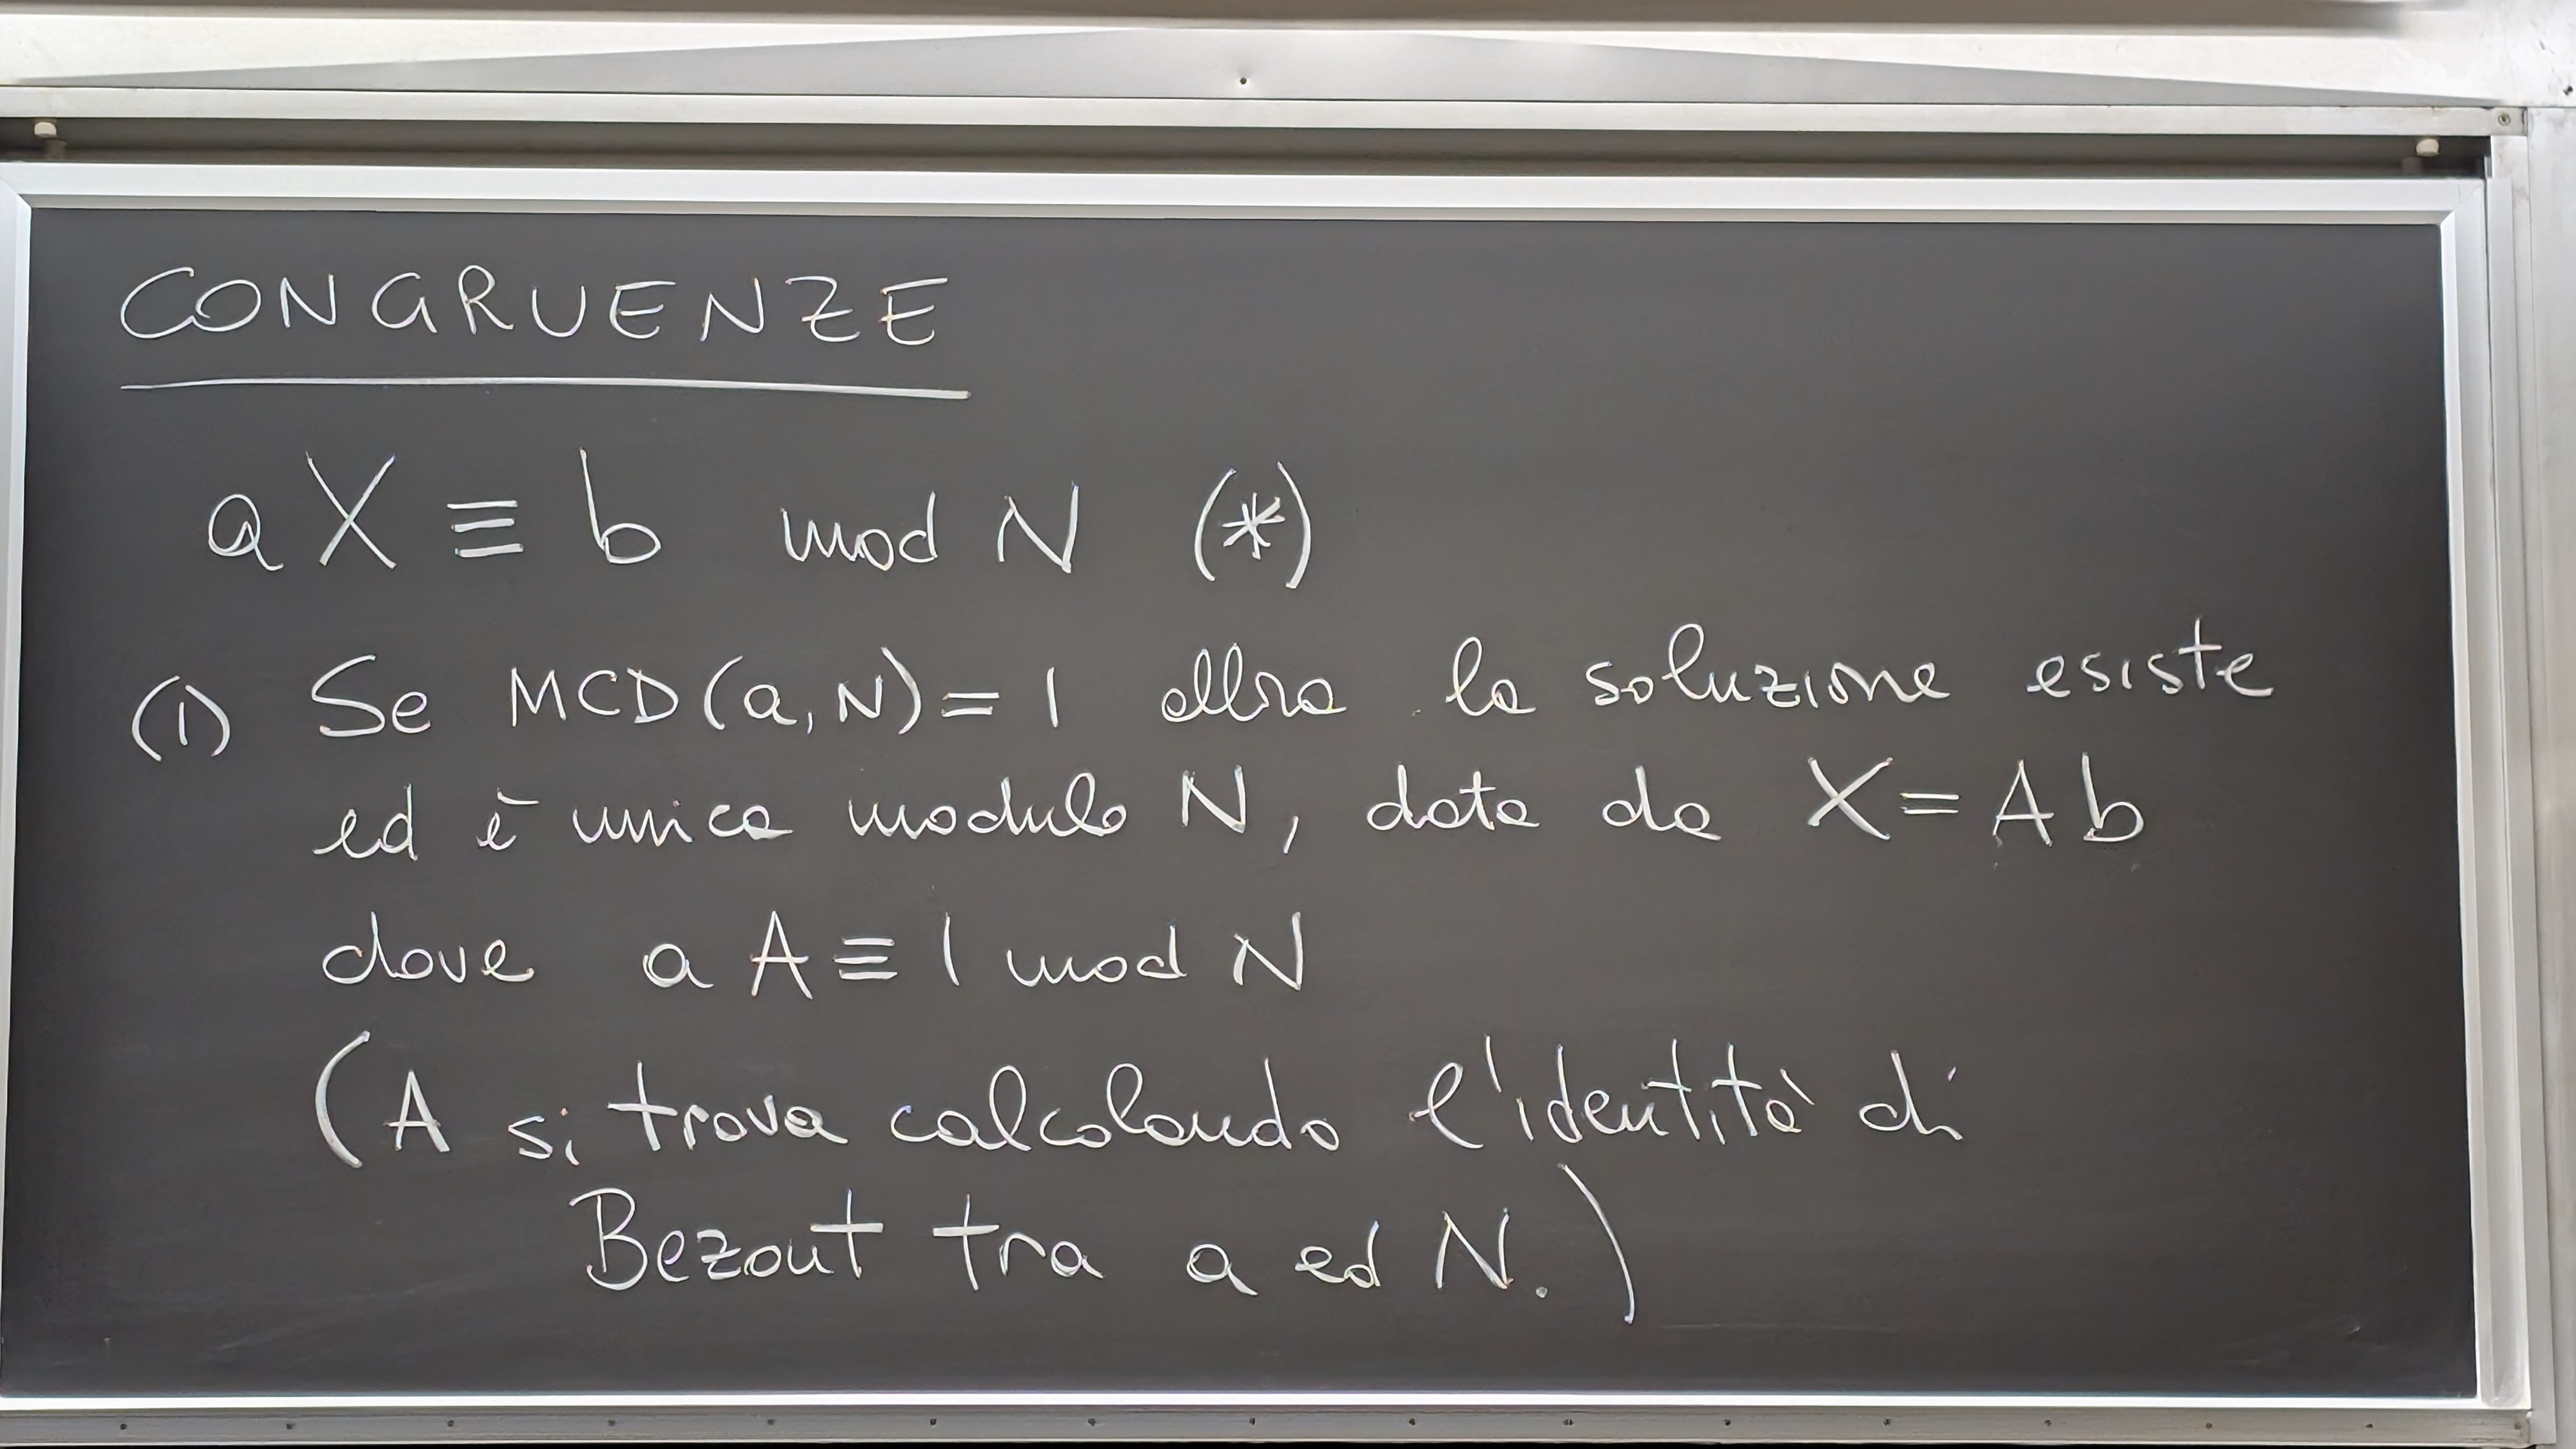 CONGRUENZE
aX ≡ b mod N (*)
(1) Se MCD(a,N)=1 allora la soluzione esiste
ed è unica modulo N, data da X = A b
dove a A ≡ 1 mod N
(A si trova calcolando l'identità di
Bezout tra a ed N.)